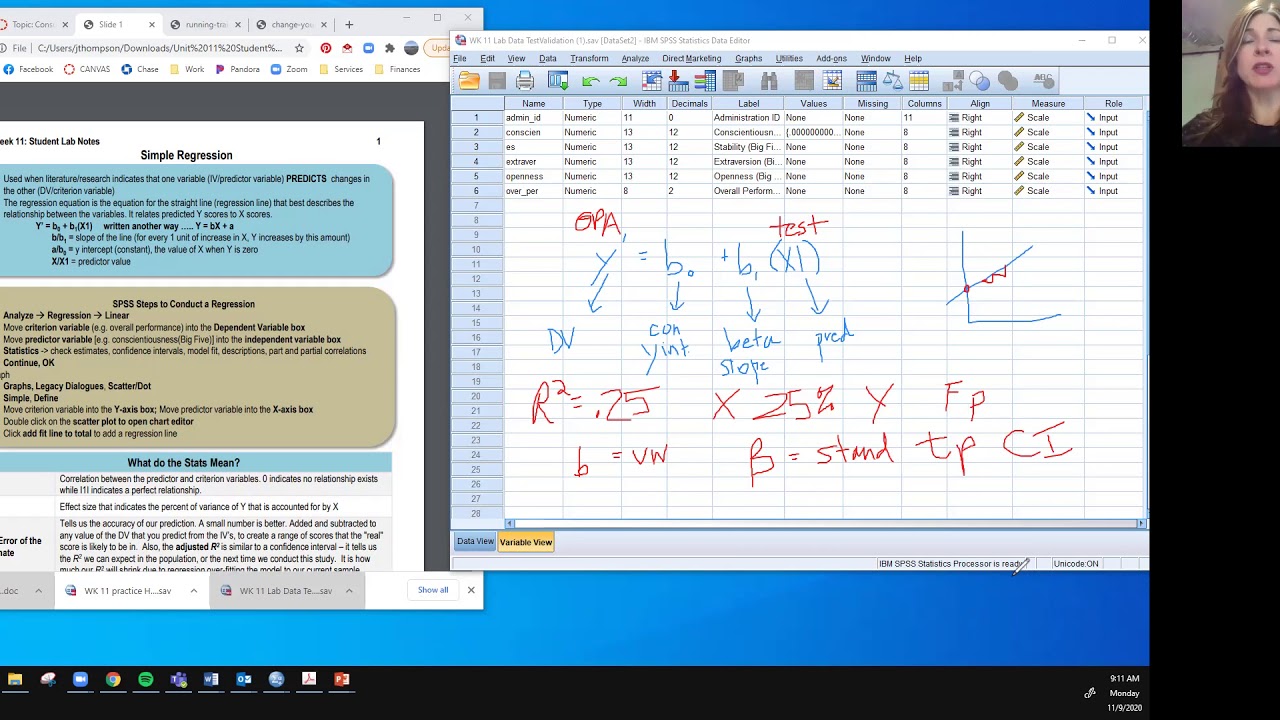 Topic: Cons
Slide 1
running-trai
change-you
File
C:/Users/jthompson/Downloads/Unit%2011%20Student%...
Upda
Facebook
CANVAS
Chase
Work
Pandora
Zoom
Services
Finances
eek 11: Student Lab Notes
1
Simple Regression
Used when literature/research indicates that one variable (IV/predictor variable) PREDICTS changes in
the other (DV/criterion variable)
The regression equation is the equation for the straight line (regression line) that best describes the
relationship between the variables. It relates predicted Y scores to X scores.
Y' = b0 + b1(X1) written another way ….. Y = bX + a
b/b1 = slope of the line (for every 1 unit of increase in X, Y increases by this amount)
a/b0 = y intercept (constant), the value of X when Y is zero
X/X1 = predictor value
SPSS Steps to Conduct a Regression
Analyze → Regression → Linear
Move criterion variable (e.g. overall performance) into the Dependent Variable box
Move predictor variable [e.g. conscientiousness(Big Five)] into the independent variable box
Statistics -> check estimates, confidence intervals, model fit, descriptions, part and partial correlations
Continue, OK
ph
Graphs, Legacy Dialogues, Scatter/Dot
Simple, Define
Move criterion variable into the Y-axis box; Move predictor variable into the X-axis box
Double click on the scatter plot to open chart editor
Click add fit line to total to add a regression line
What do the Stats Mean?
Correlation between the predictor and criterion variables. 0 indicates no relationship exists
while I1I indicates a perfect relationship.
Effect size that indicates the percent of variance of Y that is accounted for by X
Error of the
nate
Tells us the accuracy of our prediction. A small number is better. Added and subtracted to
any value of the DV that you predict from the IV's, to create a range of scores that the "real"
score is likely to be in. Also, the adjusted R² is similar to a confidence interval – it tells us
the R² we can expect in the population, or the next time we conduct this study. It is how
much our R² will shrink due to regression over-fitting the model to our current sample.
...doc
WK 11 practice H....sav
WK 11 Lab Data Te....sav
Show all
WK 11 Lab Data TestValidation (1).sav [DataSet2] - IBM SPSS Statistics Data Editor
File Edit View Data Transform Analyze Direct Marketing Graphs Utilities Add-ons Window Help
Name Type Width Decimals Label Values Missing Columns Align Measure Role
1 admin_id Numeric 11 0 Administration ID None None 11 Right Scale Input
2 conscien Numeric 13 12 Conscientiousn... {.000000000... None 8 Right Scale Input
3 es Numeric 13 12 Stability (Big Fi... None None 8 Right Scale Input
4 extraver Numeric 13 12 Extraversion (Bi... None None 8 Right Scale Input
5 openness Numeric 13 12 Openness (Big ... None None 8 Right Scale Input
6 over_per Numeric 8 2 Overall Perform... None None 8 Right Scale Input
7
8
9
10
11
12
13
14
15
16
17
18
19
20
21
22
23
24
25
26
27
28
GPA test
Y' = b0 + b1 (X1)
DV con beta pred
y int. slope
R² = .25 X 25% Y F p
b = VW β = stand t p CI
Data View
Variable View
IBM SPSS Statistics Processor is ready
Unicode:ON
9:11 AM
Monday
11/9/2020